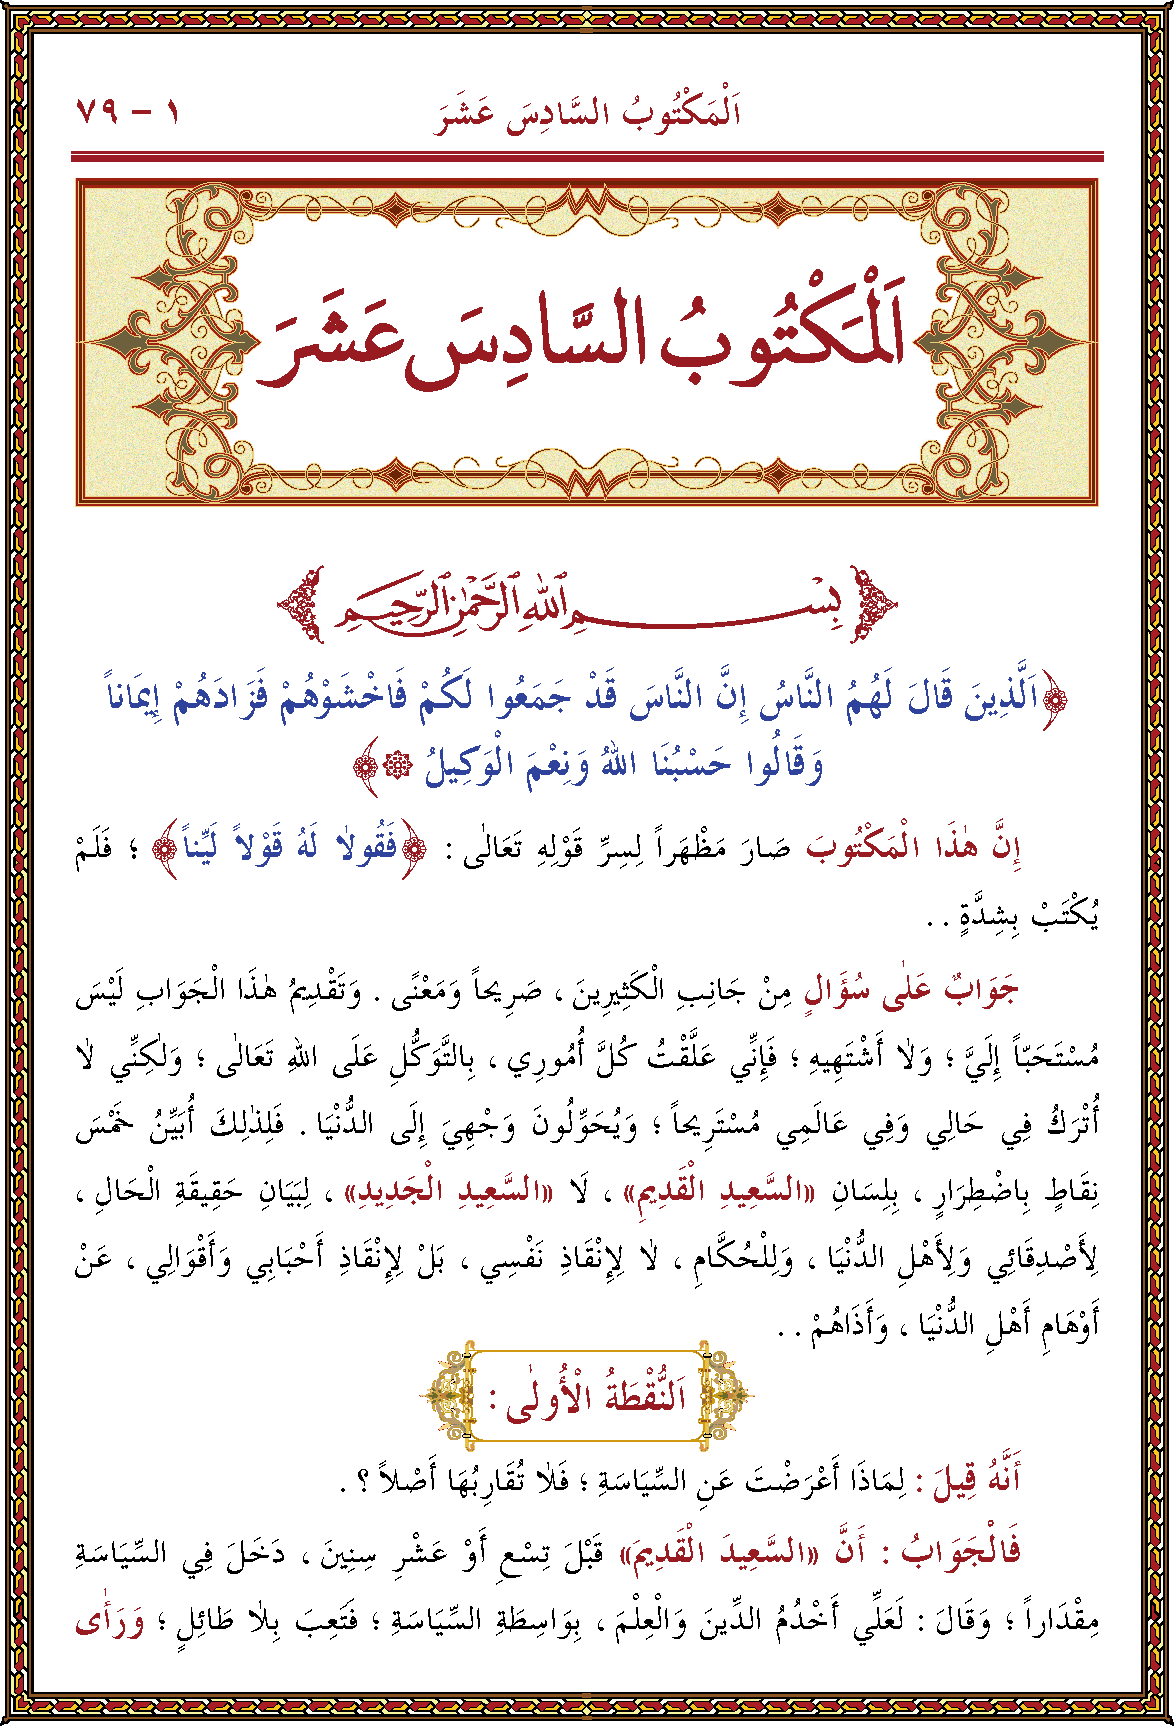 اَلْمَكْتُوبُ السَّادِسَ عَشَرَ
١ – ٧٩
اَلْمَكْتُوبُ السَّادِسَ عَشَرَ
بِسْمِ اللهِ الرَّحْمٰنِ الرَّحِيمِ
﴿اَلَّذِينَ قَالَ لَهُمُ النَّاسُ إِنَّ النَّاسَ قَدْ جَمَعُوا لَكُمْ فَاخْشَوْهُمْ فَزَادَهُمْ إِيمَاناً
وَقَالُوا حَسْبُنَا اللهُ وَنِعْمَ الْوَكِيلُ ۞﴾
إِنَّ هٰذَا الْمَكْتُوبَ صَارَ مَظْهَراً لِسِرِّ قَوْلِهِ تَعَالٰى : ﴿فَقُولاٰ لَهُ قَوْلاً لَيِّناً﴾ ؛ فَلَمْ
يُكْتَبْ بِشِدَّةٍ . .
جَوَابٌ عَلٰى سُؤَالٍ مِنْ جَانِبِ الْكَثِيرِينَ ، صَرِيحاً وَمَعْنًى . وَتَقْدِيمُ هٰذَا الْجَوَابِ لَيْسَ
مُسْتَحَبّاً إِلَيَّ ؛ وَلاٰ أَشْتَهِيهِ ؛ فَإِنِّي عَلَّقْتُ كُلَّ أُمُورِي ، بِالتَّوَكُّلِ عَلَى اللهِ تَعَالٰى ؛ وَلٰكِنِّي لاٰ
أُتْرَكُ فِي حَالِي وَفِي عَالَمِي مُسْتَرِيحاً ؛ وَيُحَوِّلُونَ وَجْهِيَ إِلَى الدُّنْيَا . فَلِذٰلِكَ أُبَيِّنُ خَمْسَ
نِقَاطٍ بِاضْطِرَارٍ ، بِلِسَانِ «السَّعِيدِ الْقَدِيمِ» ، لَا «السَّعِيدِ الْجَدِيدِ» ، لِبَيَانِ حَقِيقَةِ الْحَالِ ،
لِأَصْدِقَائِي وَلِأَهْلِ الدُّنْيَا ، وَلِلْحُكَّامِ ، لاٰ لِإِنْقَاذِ نَفْسِي ، بَلْ لِإِنْقَاذِ أَحْبَابِي وَأَقْوَالِي ، عَنْ
أَوْهَامِ أَهْلِ الدُّنْيَا ، وَأَذَاهُمْ . .
اَلنُّقْطَةُ الْأُولٰى :
أَنَّهُ قِيلَ : لِمَاذَا أَعْرَضْتَ عَنِ السِّيَاسَةِ ؛ فَلاٰ تُقَارِبُهَا أَصْلاً ؟ .
فَالْجَوَابُ : أَنَّ «السَّعِيدَ الْقَدِيمَ» قَبْلَ تِسْعِ أَوْ عَشْرِ سِنِينَ ، دَخَلَ فِي السِّيَاسَةِ
مِقْدَاراً ؛ وَقَالَ : لَعَلِّي أَخْدُمُ الدِّينَ وَالْعِلْمَ ، بِوَاسِطَةِ السِّيَاسَةِ ؛ فَتَعِبَ بِلاٰ طَائِلٍ ؛ وَرَأٰى